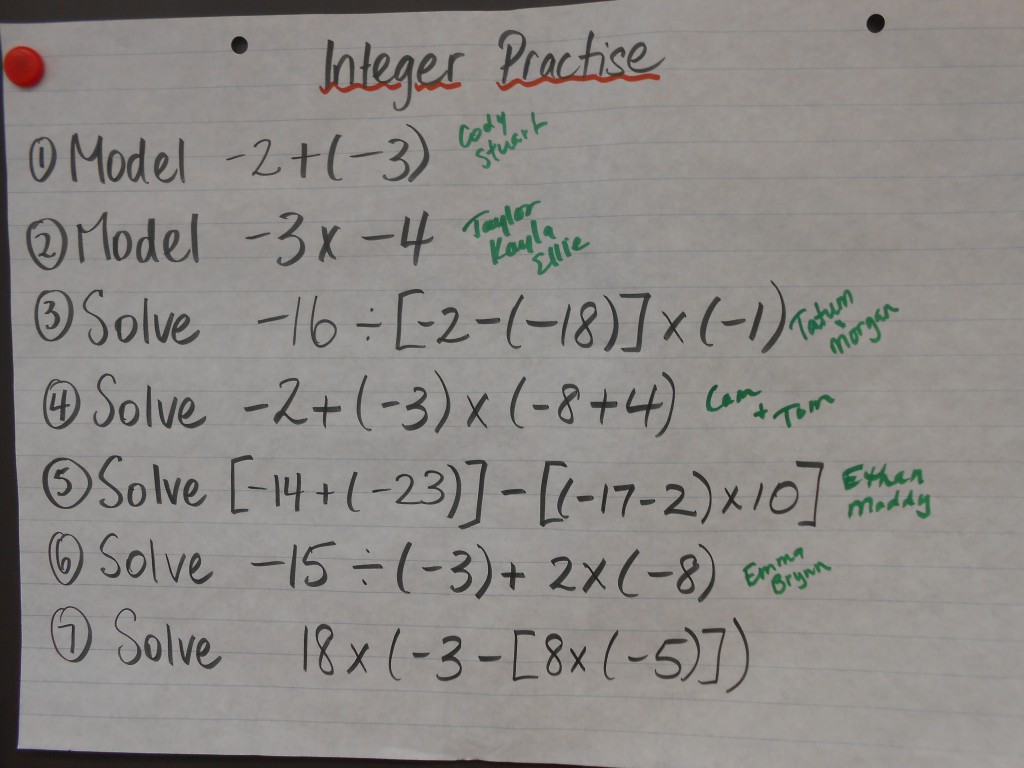 Integer Practise
① Model -2+(-3) Cody Stuart
② Model -3x -4 Taylor Kayla Ellie
③ Solve -16 ÷ [-2-(-18)] x (-1) Tatum Morgan
④ Solve -2+(-3) x (-8+4) Cam + Tom
⑤ Solve [-14+(-23)] - [(-17-2) x 10] Ethan Maddy
⑥ Solve -15 ÷ (-3) + 2x(-8) Emma Brynn
⑦ Solve 18 x (-3 - [8x (-5)])